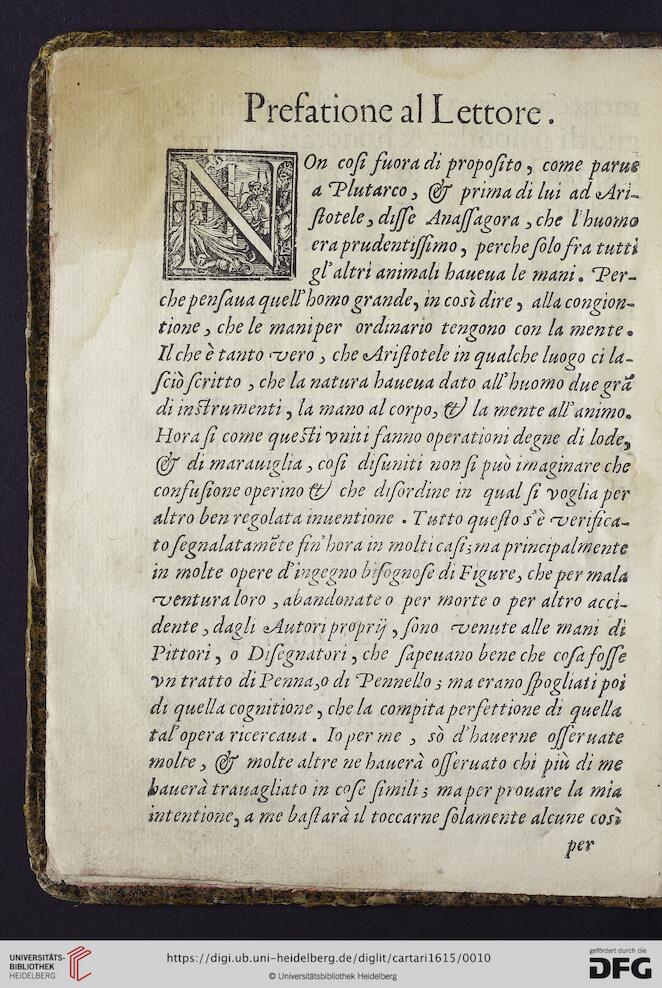 Prefatione al Lettore.
NOn coſi fuora di propoſito, come parue
a Plutarco, & prima di lui ad Ari-
ſtotele, diſſe Anaſſagora, che l'huomo
era prudentiſſimo, perche ſolo fra tutti
gl'altri animali haueua le mani. Per-
che penſaua quell'homo grande, in così dire, alla congion-
tione, che le mani per ordinario tengono con la mente.
Il che è tanto vero, che Ariſtotele in qualche luogo ci la-
ſciò ſcritto, che la natura haueua dato all'huomo due grã
di inſtrumenti, la mano al corpo, & la mente all'animo.
Hora ſi come queſti vniti fanno operationi degne di lode,
& di marauiglia, coſi diſuniti non ſi può imaginare che
confuſione operino & che diſordine in qual ſi voglia per
altro ben regolata inuentione. Tutto queſto s'è verifica-
to ſegnalatamẽte fin'hora in molti caſi; ma principalmente
in molte opere d'ingegno biſognoſe di Figure, che per mala
ventura loro, abandonate o per morte o per altro acci-
dente, dagli Autori proprij, ſono venute alle mani di
Pittori, o Diſegnatori, che ſapeuano bene che coſa foſſe
vn tratto di Penna, o di Pennello; ma erano ſpogliati poi
di quella cognitione, che la compita perfettione di quella
tal'opera ricercaua. Io per me, sò d'hauerne oſſeruate
molte, & molte altre ne hauerà oſſeruato chi più di me
hauerà trauagliato in coſe ſimili; ma per prouare la mia
intentione, a me baſtarà il toccarne ſolamente alcune così
per
UNIVERSITÄTS-
BIBLIOTHEK
HEIDELBERG
https://digi.ub.uni-heidelberg.de/diglit/cartari1615/0010
© Universitätsbibliothek Heidelberg
gefördert durch die
DFG